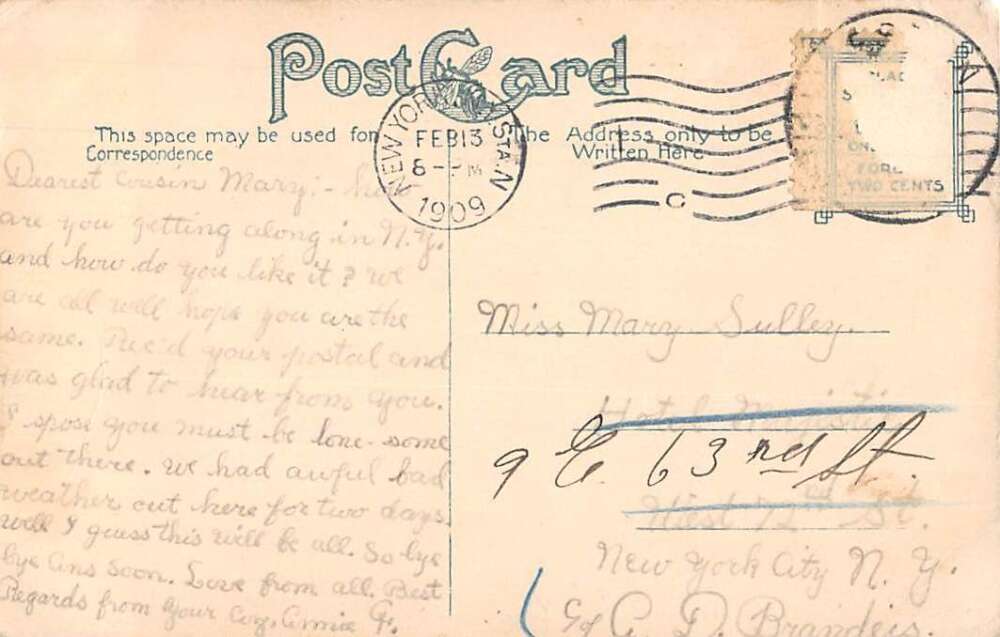 Post Card
This space may be used for
Correspondence
The Address only to be
Written Here
NEW YORK, N.Y. STA. N
FEB 13
8 - PM
1909
C
N
PLAC
S
ON
FOR
TWO CENTS
Dearest Cousin Mary:- How
are you getting along in N.Y.
and how do you like it? we
are all well hope you are the
same. Rec'd your postal and
was glad to hear from you.
I spose you must be lone-some
out there. we had awful bad
weather out here for two days.
well I guess this will be all. So bye
bye Ans soon. Love from all. Best
Regards from your Coz. Annie G.
Miss Mary Sulley.
Hotel Majestic
9 E. 63rd St.
West 72nd St.
New York City N. Y.
c/o C. D. Brandeis.